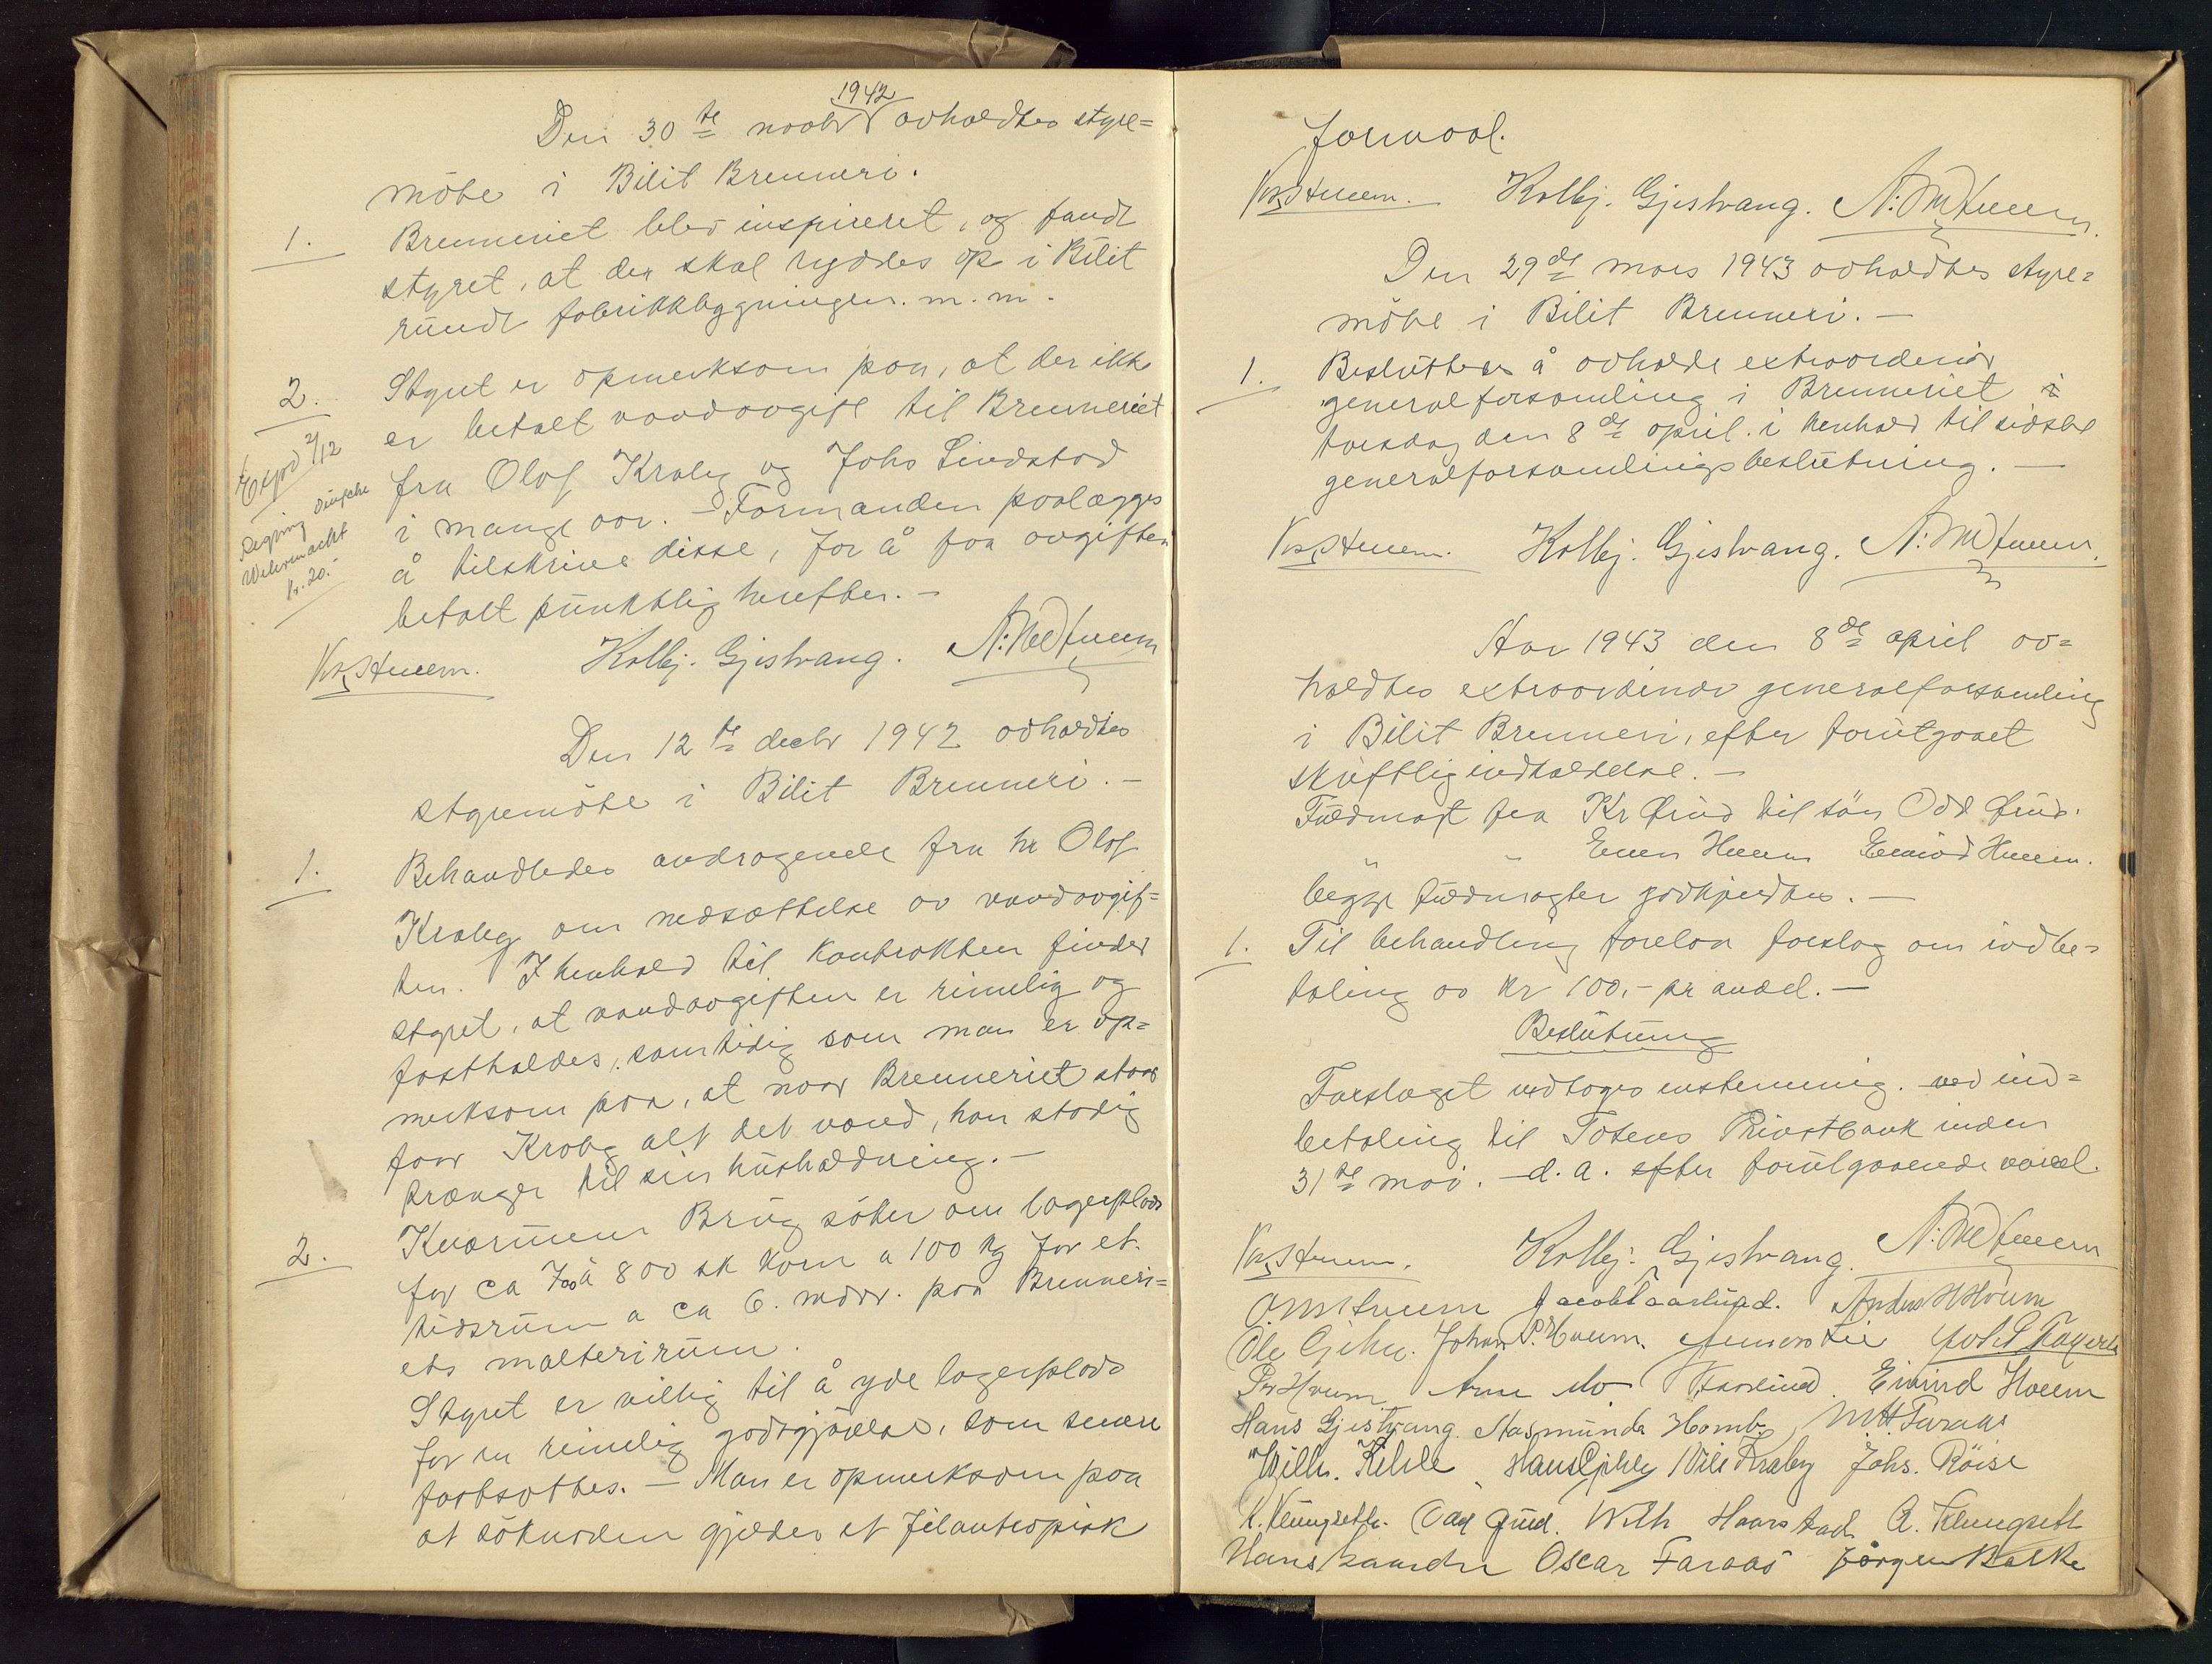 Den 30te novbr 1942 avholdtes styre=
möte i Bilit Brenneri.
1. Brenneriet blev inspiseret, og fandt
styret, at der skal ryddes op i Bilit
rundt fabrikkbygningen. m. m.
2. Styret er opmerksom paa, at der ikke
er betalt vandavgift til Brenneriet
fra Olaf Kraby og Johs Lindstad
i mange aar. – Formanden paalægges
å tilskrive disse, for å faa avgiften
betalt punktlig herefter. –
Expd 2/12
Regning
Wehrmacht
kr. 20.-
Kolbj. Gjestvang.
Den 12te decbr 1942 avholdtes
styremöte i Bilit Brenneri. –
1. Behandledes andragende fra hr Olaf
Kraby om nedsættelse av vandavgif=
ten. I henhold til kontrakten finder
styret, at vandavgiften er rimelig og
fastholdes, samtidig som man er op=
merksom paa, at naar Brenneriet staar
faar Kraby alt det vand, han stadig
trænger til sin husholdning. –
2. Kværnum Brug söker om lagerplads
for ca 700 à 800 sk korn a 100 kg for et
tidsrum a ca 6. mdr. paa Brenneri=
ets malterirum.
Styret er villig til å yde lagerplads
for en rimelig godtgjörelse, som senere
fastsættes. – Man er opmerksom paa
at söknaden gjælder et filantropisk
formaal.
Kolbj. Gjestvang.
Den 29de mars 1943 avholdtes styre=
möte i Bilit Brenneri. –
1. Besluttedes å avholde extraordinær
generalforsamling i Brenneriet
torsdag den 8de april i henhold til sidste
generalforsamlingsbeslutning. –
Kolbj. Gjestvang.
Aar 1943 den 8de april av=
holdtes extraordinær generalforsamling
i Bilit Brenneri, efter forutgaaet
skriftlig indkaldelse. –
Fuldmagt fra Kr Grud til sön Odd Grud.
" " Even Hveem Eivind Hveem.
begge fuldmagter godkjendtes. –
1. Til behandling forelaa forslag om indbe=
taling av kr 100,- pr andel. –
Beslutning
Forslaget vedtoges enstemmig. ved ind=
betaling til Totens Privatbank inden
31te mai. – d. a. efter forutgaaende varsel.
Kolbj. Gjestvang.
O. M. Hveem Jacob Paarlund. Anders H Hveem
Ole Gjehu. Johan P. Hveem.
Per Hveem Arne Mo Eivind Hveem
Hans Gjestvang. Aasmund M. H. Faraas
Wilh. Kihle Nils Kraby Johs. Röise
K. Klungseth. Odd Grud. Wilh Haarstad A. Klungseth
Hans Oscar Faraas Jörgen Balke